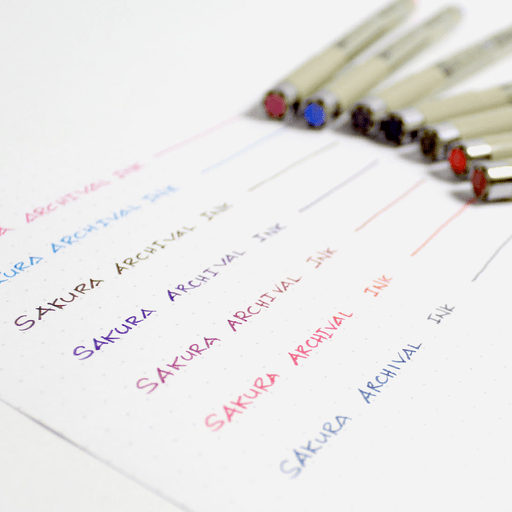 A ARCHIVAL INK
KURA ARCHIVAL INK
SAKURA ARCHIVAL INK
SAKURA ARCHIVAL INK
SAKURA ARCHIVAL INK
SAKURA ARCHIVAL INK
SAKURA ARCHIVAL INK